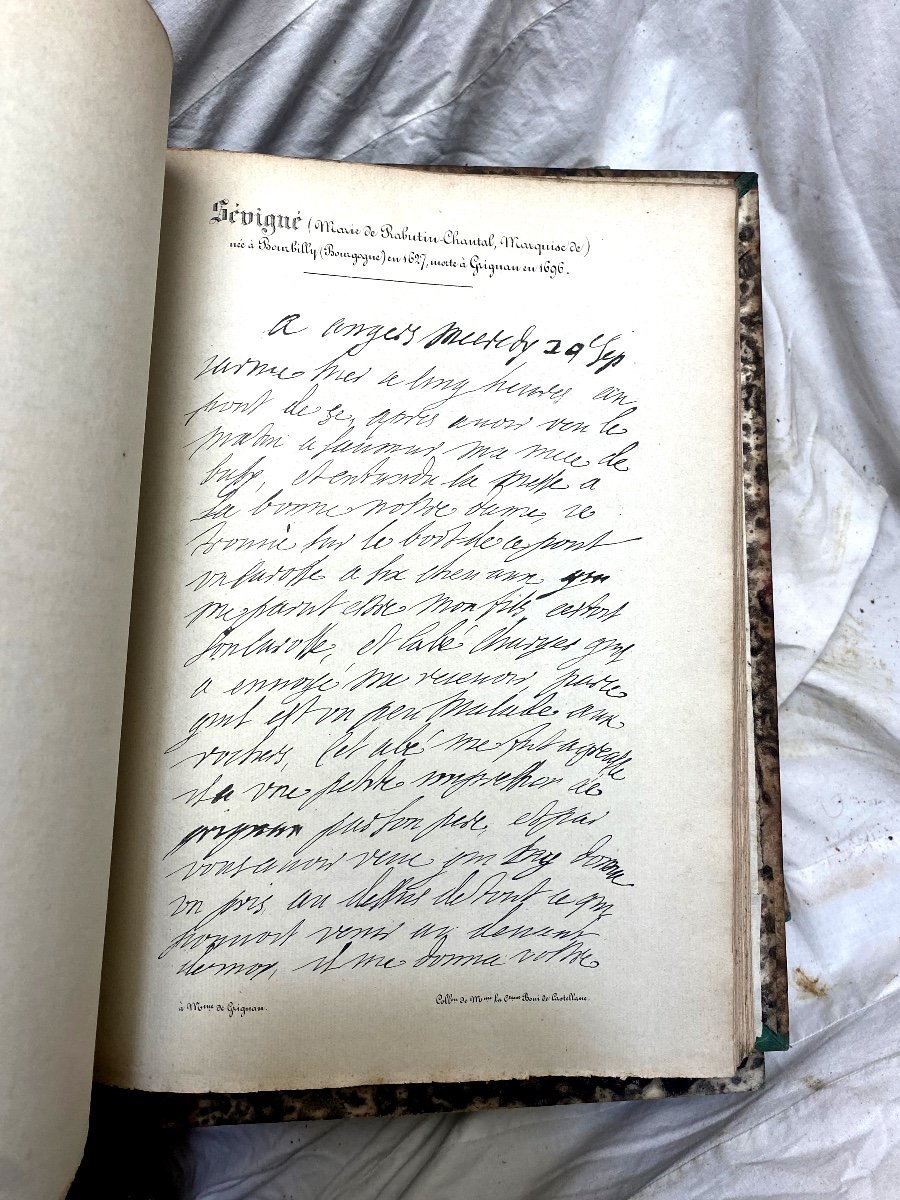 Sévigné (Marie de Rabutin-Chantal, Marquise de)
née à Bourbilly (Bourgogne) en 1627, morte à Grignan en 1696.
a angers mecredy 20e sep
iarriue hier a cinq heures au
pont de se, apres auoir veu le
matin a saumur ma niece de
bussy, et entendu la messe a
la bonne nostre dame, ie
trouué sur le bort de ce pont
vn carosse a six cheuaux quy
me parut estre mon fils, cestoit
son carosse, et labé charier quil
a enuoyé me receuoir parce
quil est vn peu malade aux
rochers, cet abé me fut agreable
il a vne petite impression de
grignan par son pere, et par
vous auoir veue qui luy donne
vn pris au dessus de tout ce quy
pouuoit venir au deuant
de moy, il me donna vostre
à Mme de Grignan.
Collon de Mme la Ctesse Boni de Castellane.